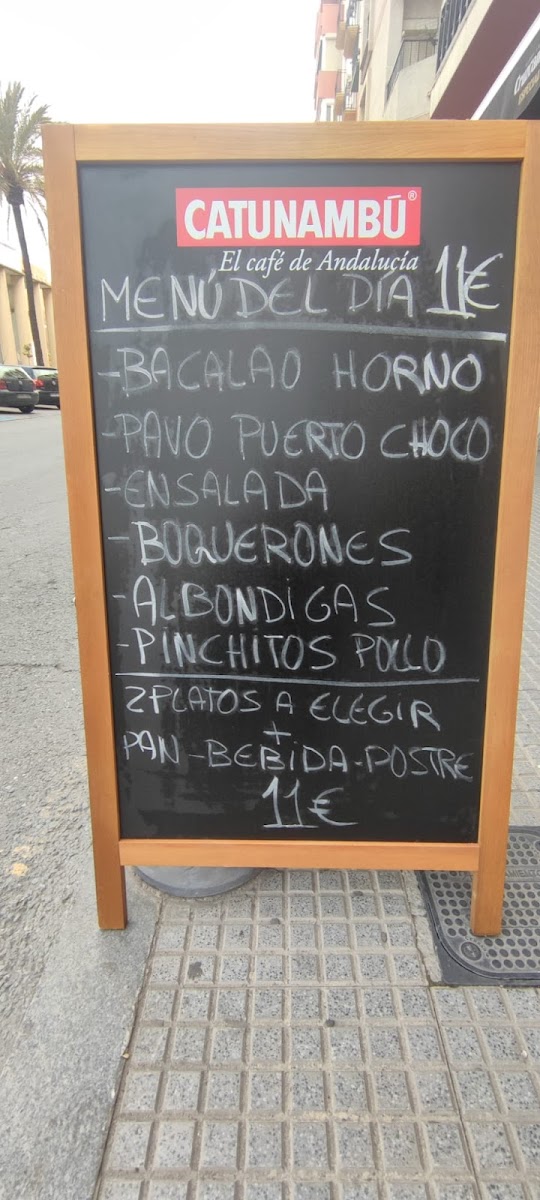 CATUNAMBÚ®
El café de Andalucía
MENÚ DEL DÍA 11€
-BACALAO HORNO
-PAVO PUERTO CHOCO
-ENSALADA
-BOQUERONES
-ALBONDIGAS
-PINCHITOS POLLO
2 PLATOS A ELEGIR
+
PAN-BEBIDA-POSTRE
11€